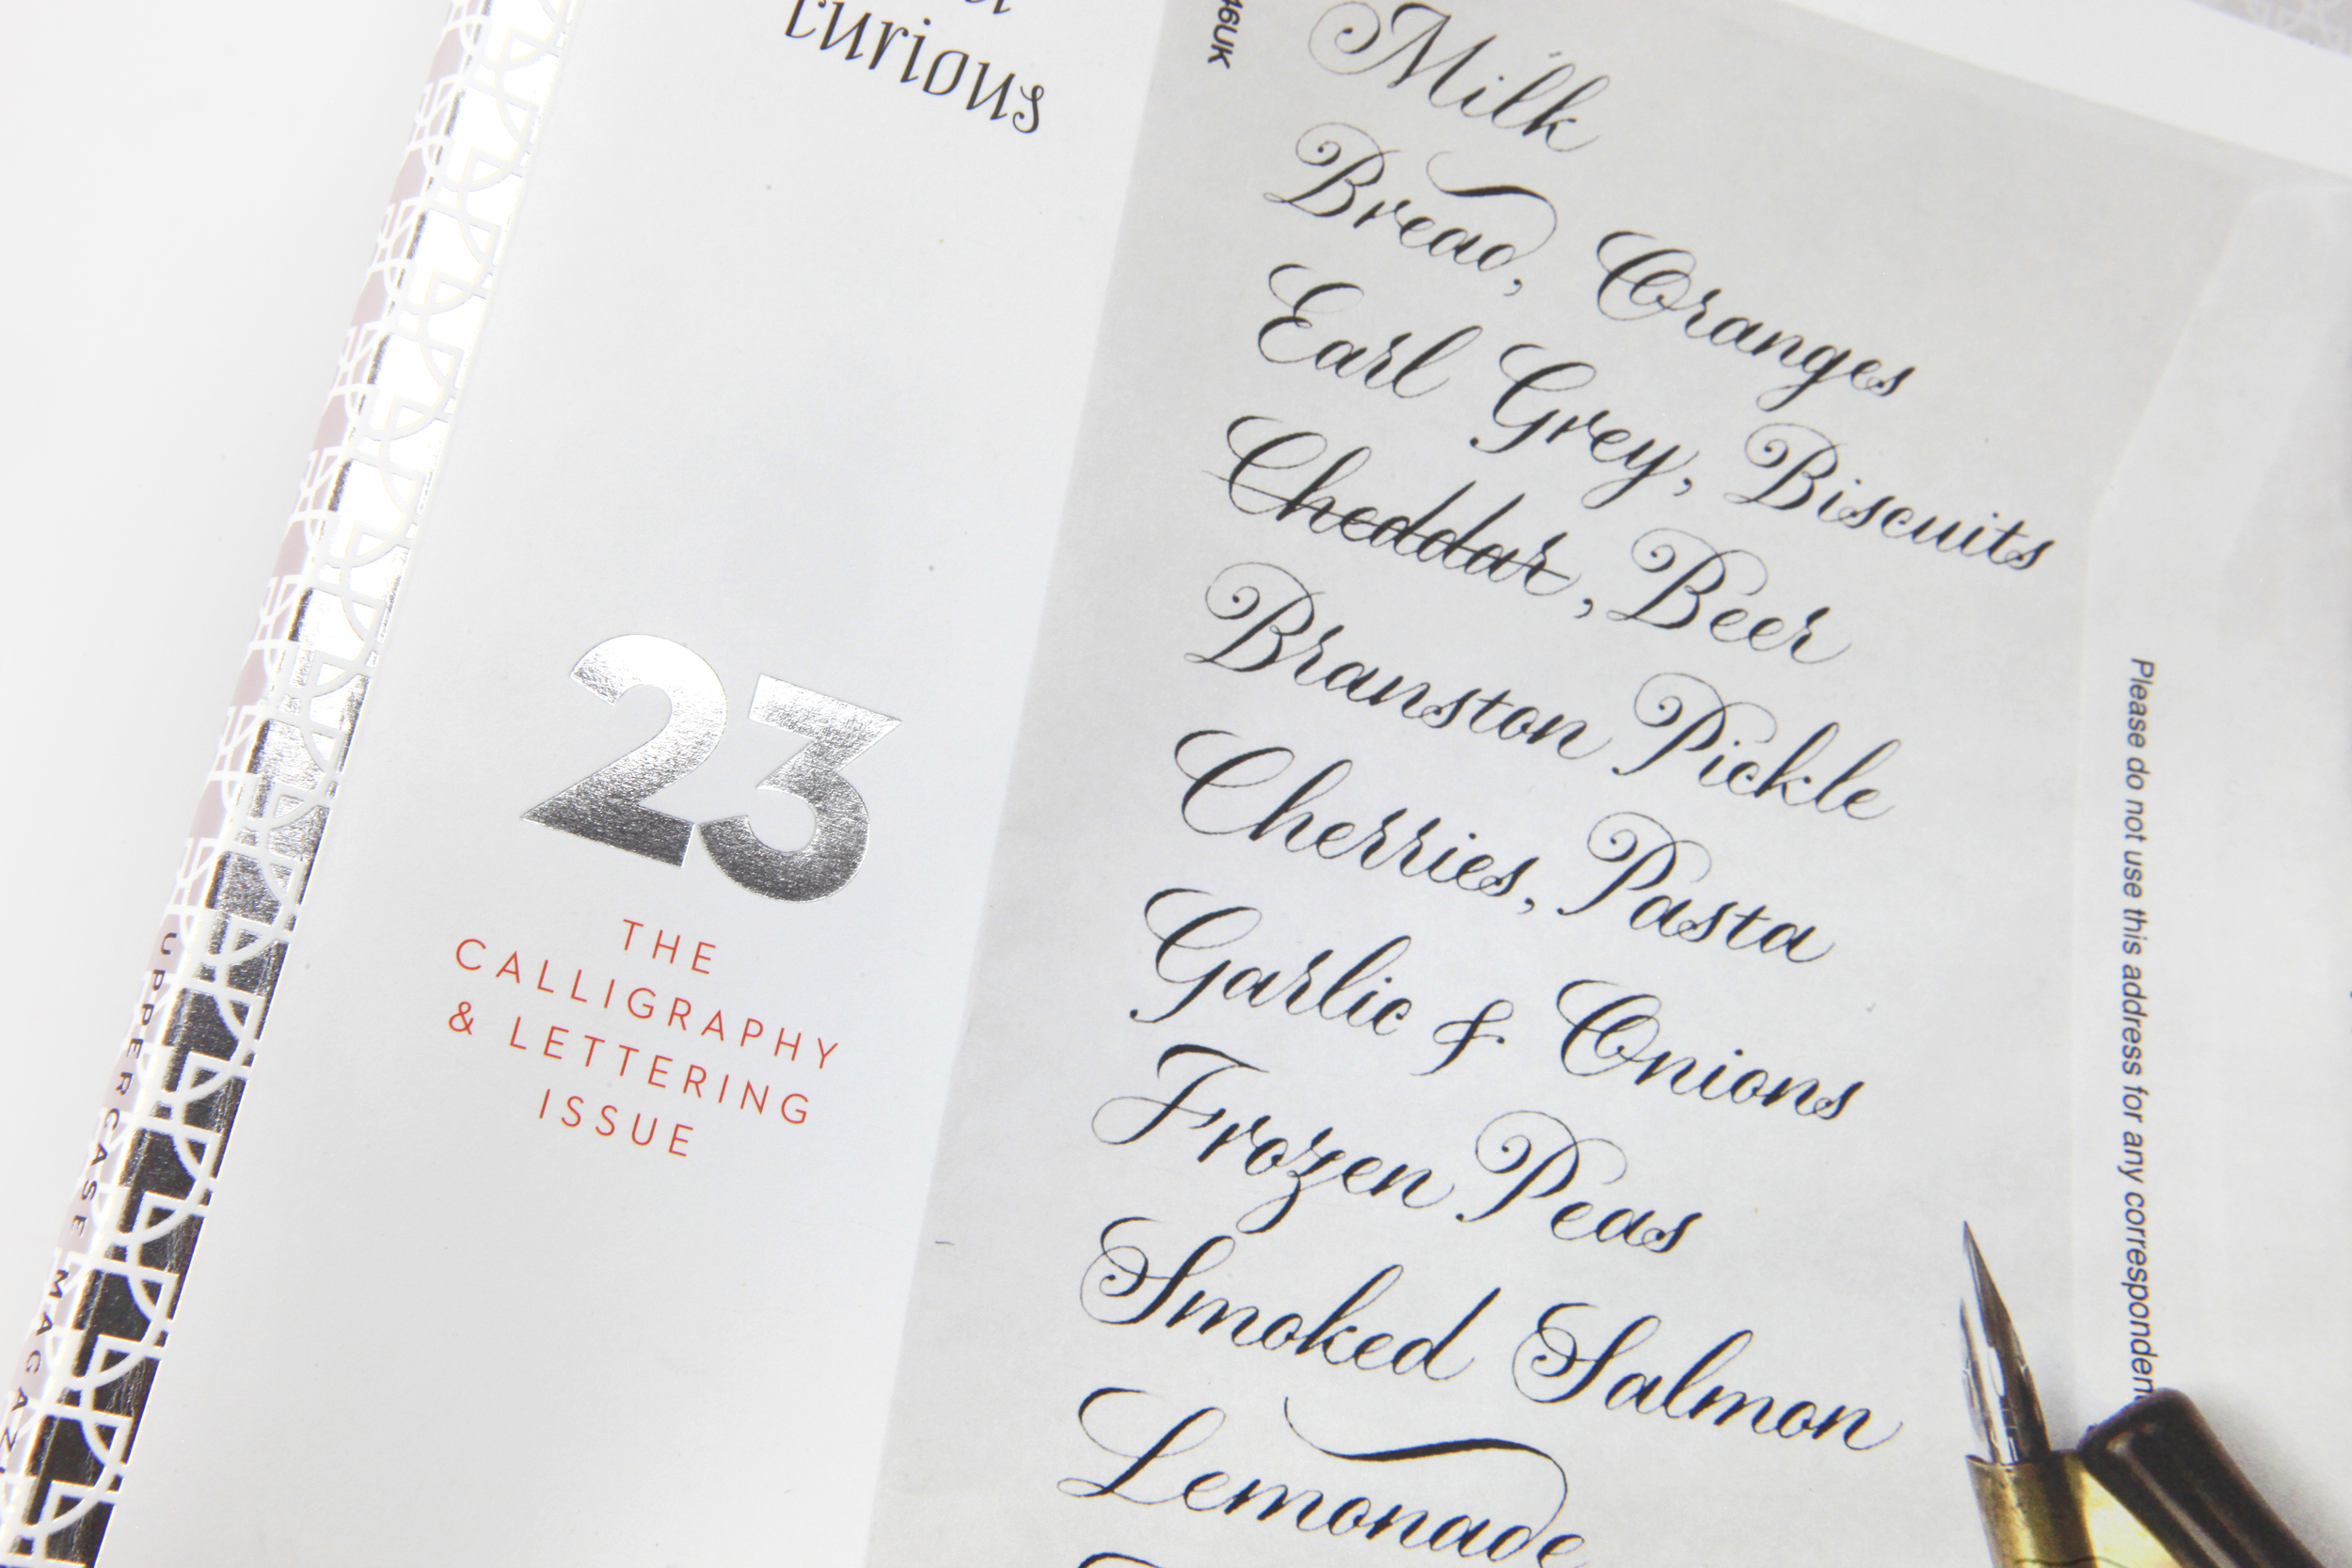 curious
23
THE
CALLIGRAPHY
& LETTERING
ISSUE
UPPERCASE MAGAZ
46UK
Milk
Bread, Oranges
Earl Grey, Biscuits
Cheddar, Beer
Branston Pickle
Cherries, Pasta
Garlic & Onions
Frozen Peas
Smoked Salmon
Lemonade
Please do not use this address for any corresponden